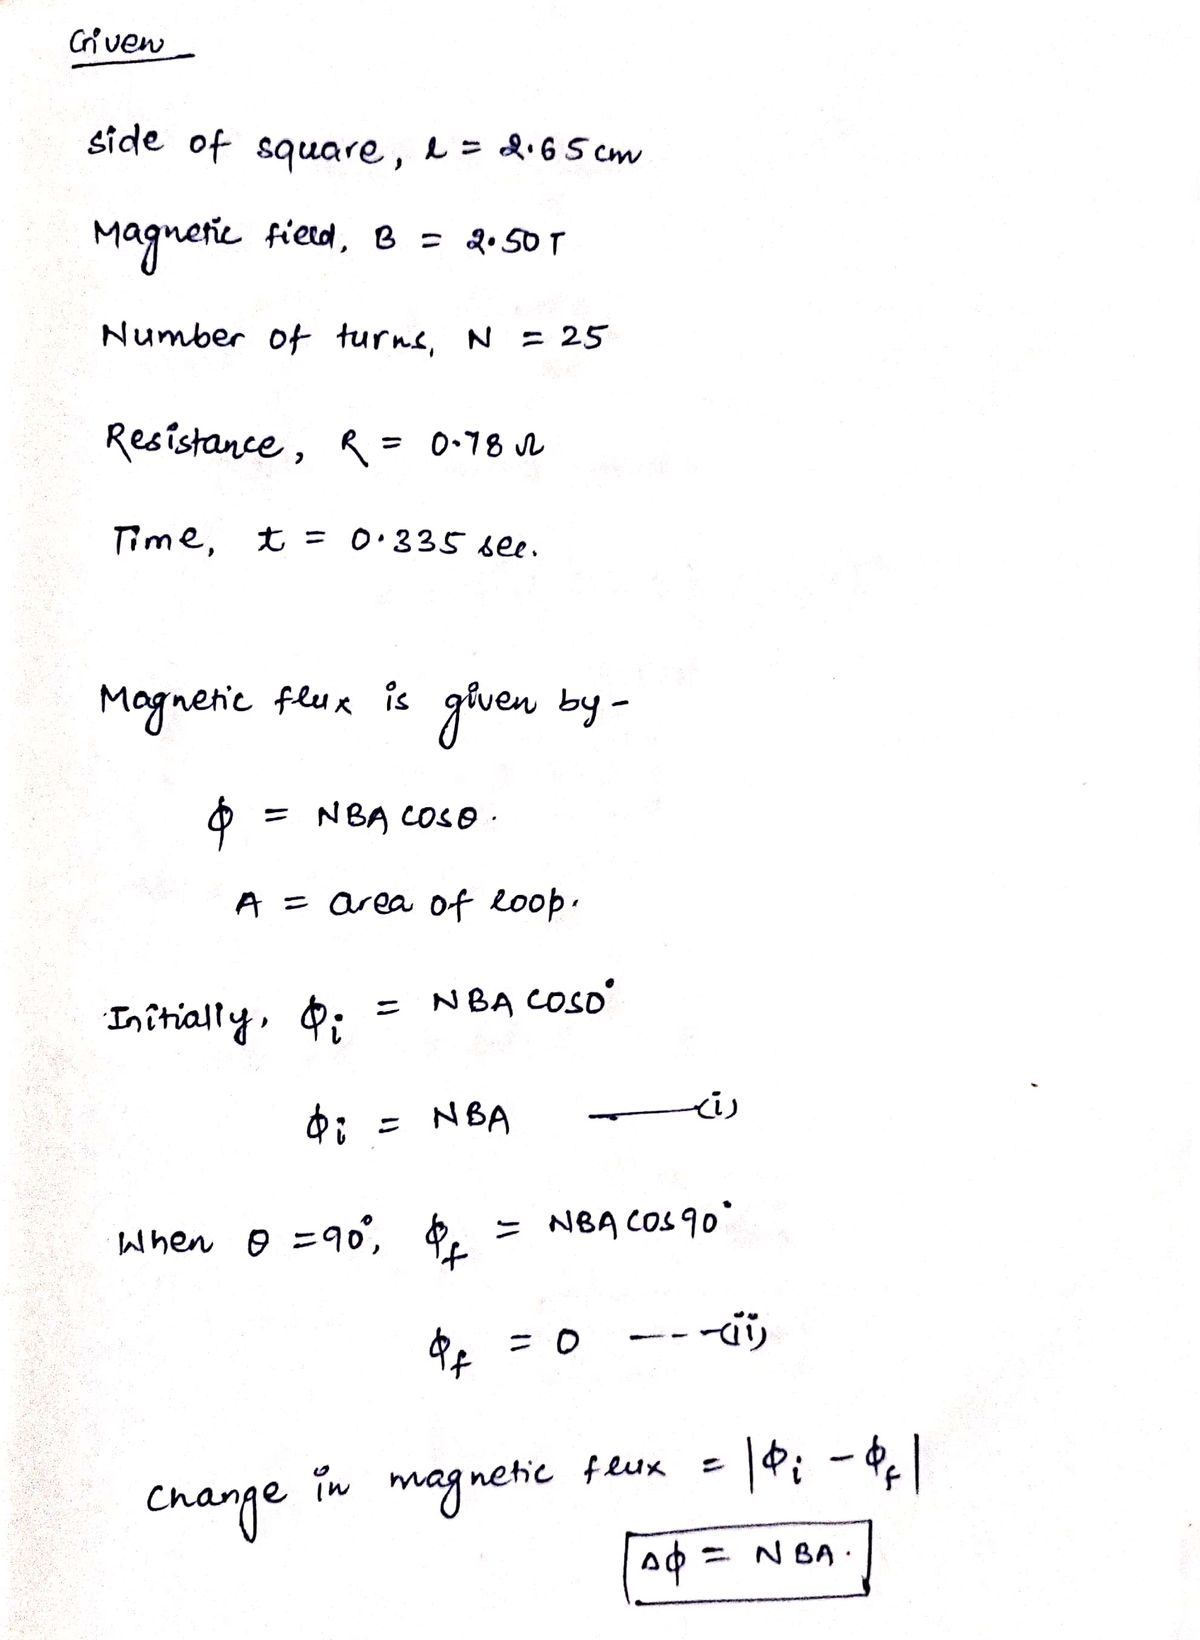 Given
side of square, l = 2.65 cm
Magnetic field, B = 2.50 T
Number of turns, N = 25
Resistance, R = 0.78 Ω
Time, t = 0.335 sec.
Magnetic flux is given by -
ϕ = NBA cosθ.
A = area of loop.
Initially, ϕi = NBA cos0°
ϕi = NBA —(i)
When θ = 90°, ϕf = NBA cos90°
ϕf = 0 ---(ii)
Change in magnetic flux = |ϕi - ϕf|
Δϕ = NBA.